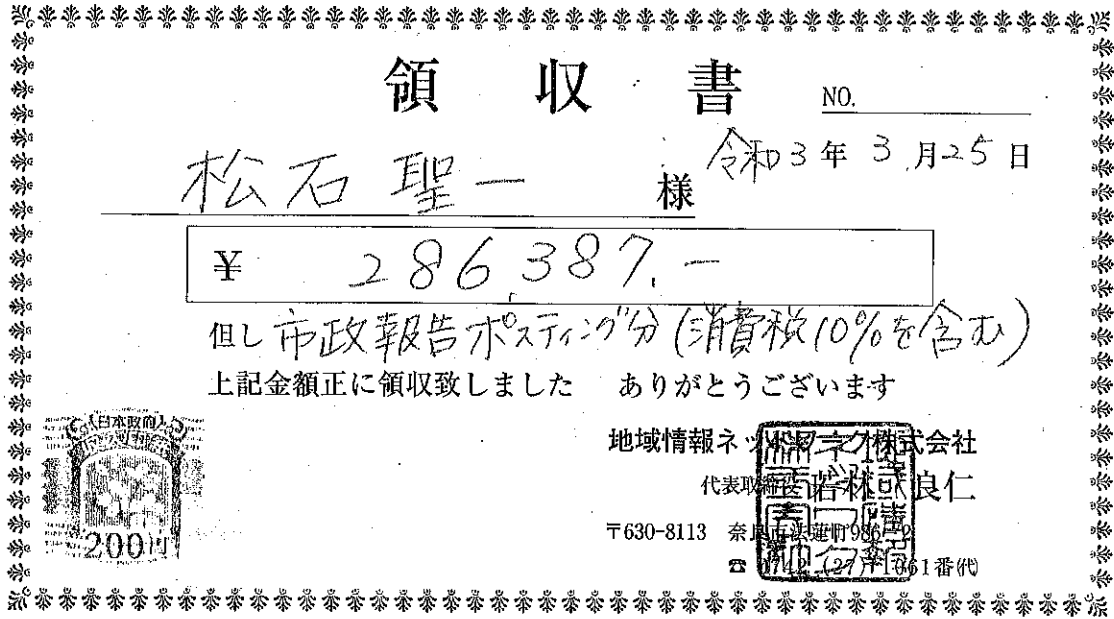 領 収 書
NO.
令和3年3月25日
松石聖一 様
¥ 286,387.-
但し 市政報告ポスティング分(消費税10%を含む)
上記金額正に領収致しました ありがとうございます
日本政府
200円
地域情報ネットワーク株式会社
代表取締役 若林 良仁
〒630-8113 奈良市法蓮町986-2
☎ 0742 (27) 1061番(代)